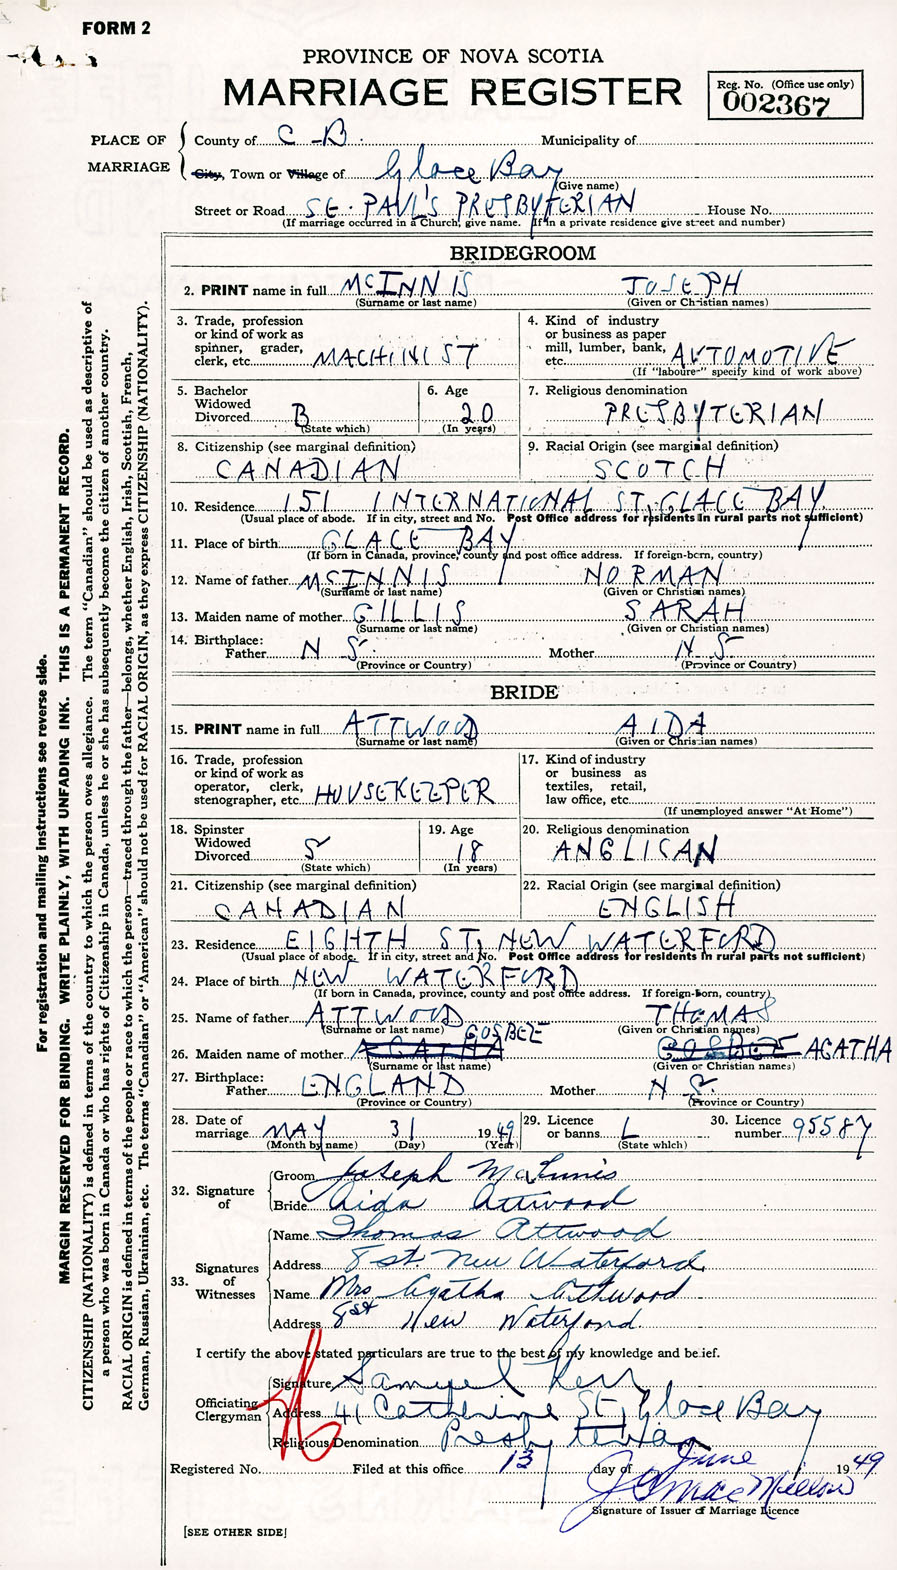 FORM 2
PROVINCE OF NOVA SCOTIA
MARRIAGE REGISTER
Reg. No. (Office use only)
002367
PLACE OF MARRIAGE
County of C-B. Municipality of
City, Town or Village of Glace Bay
(Give name)
Street or Road ST. PAUL'S PRESBYTERIAN House No.
(If marriage occurred in a Church, give name. If in a private residence give street and number)
BRIDEGROOM
2. PRINT name in full MCINNIS JOSEPH
(Surname or last name) (Given or Christian names)
3. Trade, profession or kind of work as spinner, grader, clerk, etc. MACHINIST
4. Kind of industry or business as paper mill, lumber, bank, etc. AUTOMOTIVE
(If "laborer" specify kind of work above)
5. Bachelor Widowed Divorced B
(State which)
6. Age 20
(In years)
7. Religious denomination
PRESBYTERIAN
8. Citizenship (see marginal definition)
CANADIAN
9. Racial Origin (see marginal definition)
SCOTCH
10. Residence 151 INTERNATIONAL ST, GLACE BAY
(Usual place of abode. If in city, street and No. Post Office address for residents in rural parts not sufficient)
11. Place of birth GLACE BAY
(If born in Canada, province, county and post office address. If foreign-born, country)
12. Name of father MCINNIS NORMAN
(Surname or last name) (Given or Christian names)
13. Maiden name of mother GILLIS SARAH
(Surname or last name) (Given or Christian names)
14. Birthplace:
Father N S Mother N S
(Province or Country) (Province or Country)
BRIDE
15. PRINT name in full ATTWOOD AIDA
(Surname or last name) (Given or Christian names)
16. Trade, profession or kind of work as operator, clerk, stenographer, etc. HOUSEKEEPER
17. Kind of industry or business as textiles, retail, law office, etc.
(If unemployed answer "At Home")
18. Spinster Widowed Divorced S
(State which)
19. Age 18
(In years)
20. Religious denomination
ANGLICAN
21. Citizenship (see marginal definition)
CANADIAN
22. Racial Origin (see marginal definition)
ENGLISH
23. Residence EIGHTH ST, NEW WATERFORD
(Usual place of abode. If in city, street and No. Post Office address for residents in rural parts not sufficient)
24. Place of birth NEW WATERFORD
(If born in Canada, province, county and post office address. If foreign-born, country)
25. Name of father ATTWOOD THOMAS
(Surname or last name) (Given or Christian names)
GOSBEE
26. Maiden name of mother AGATHA GOSBEE AGATHA
(Surname or last name) (Given or Christian names)
27. Birthplace:
Father ENGLAND Mother N S
(Province or Country) (Province or Country)
28. Date of marriage MAY 31 1949
(Month by name) (Day) (Year)
29. Licence or banns L
(State which)
30. Licence number 95587
32. Signature of
Groom Joseph McInnis
Bride Aida Attwood
33. Signatures of Witnesses
Name Thomas Attwood
Address 8 st. New Waterford
Name Mrs Agatha Attwood
Address 8st New Waterford
I certify the above stated particulars are true to the best of my knowledge and belief.
Officiating Clergyman
Signature Samuel Kerr
Address 41 Catherine St, Glace Bay
Religious Denomination Presbyterian
Registered No. Filed at this office 13 day of June 1949
J G MacMillan
Signature of Issuer of Marriage Licence
[SEE OTHER SIDE]
For registration and mailing instructions see reverse side.
MARGIN RESERVED FOR BINDING. WRITE PLAINLY, WITH UNFADING INK. THIS IS A PERMANENT RECORD.
CITIZENSHIP (NATIONALITY) is defined in terms of the country to which the person owes allegiance. The term "Canadian" should be used as descriptive of
a person who was born in Canada or who has rights of Citizenship in Canada, unless he or she has subsequently become the citizen of another country.
RACIAL ORIGIN is defined in terms of the people or race to which the person—traced through the father—belongs, whether English, Irish, Scottish, French,
German, Russian, Ukrainian, etc. The terms "Canadian" or "American" should not be used for RACIAL ORIGIN, as they express CITIZENSHIP (NATIONALITY).